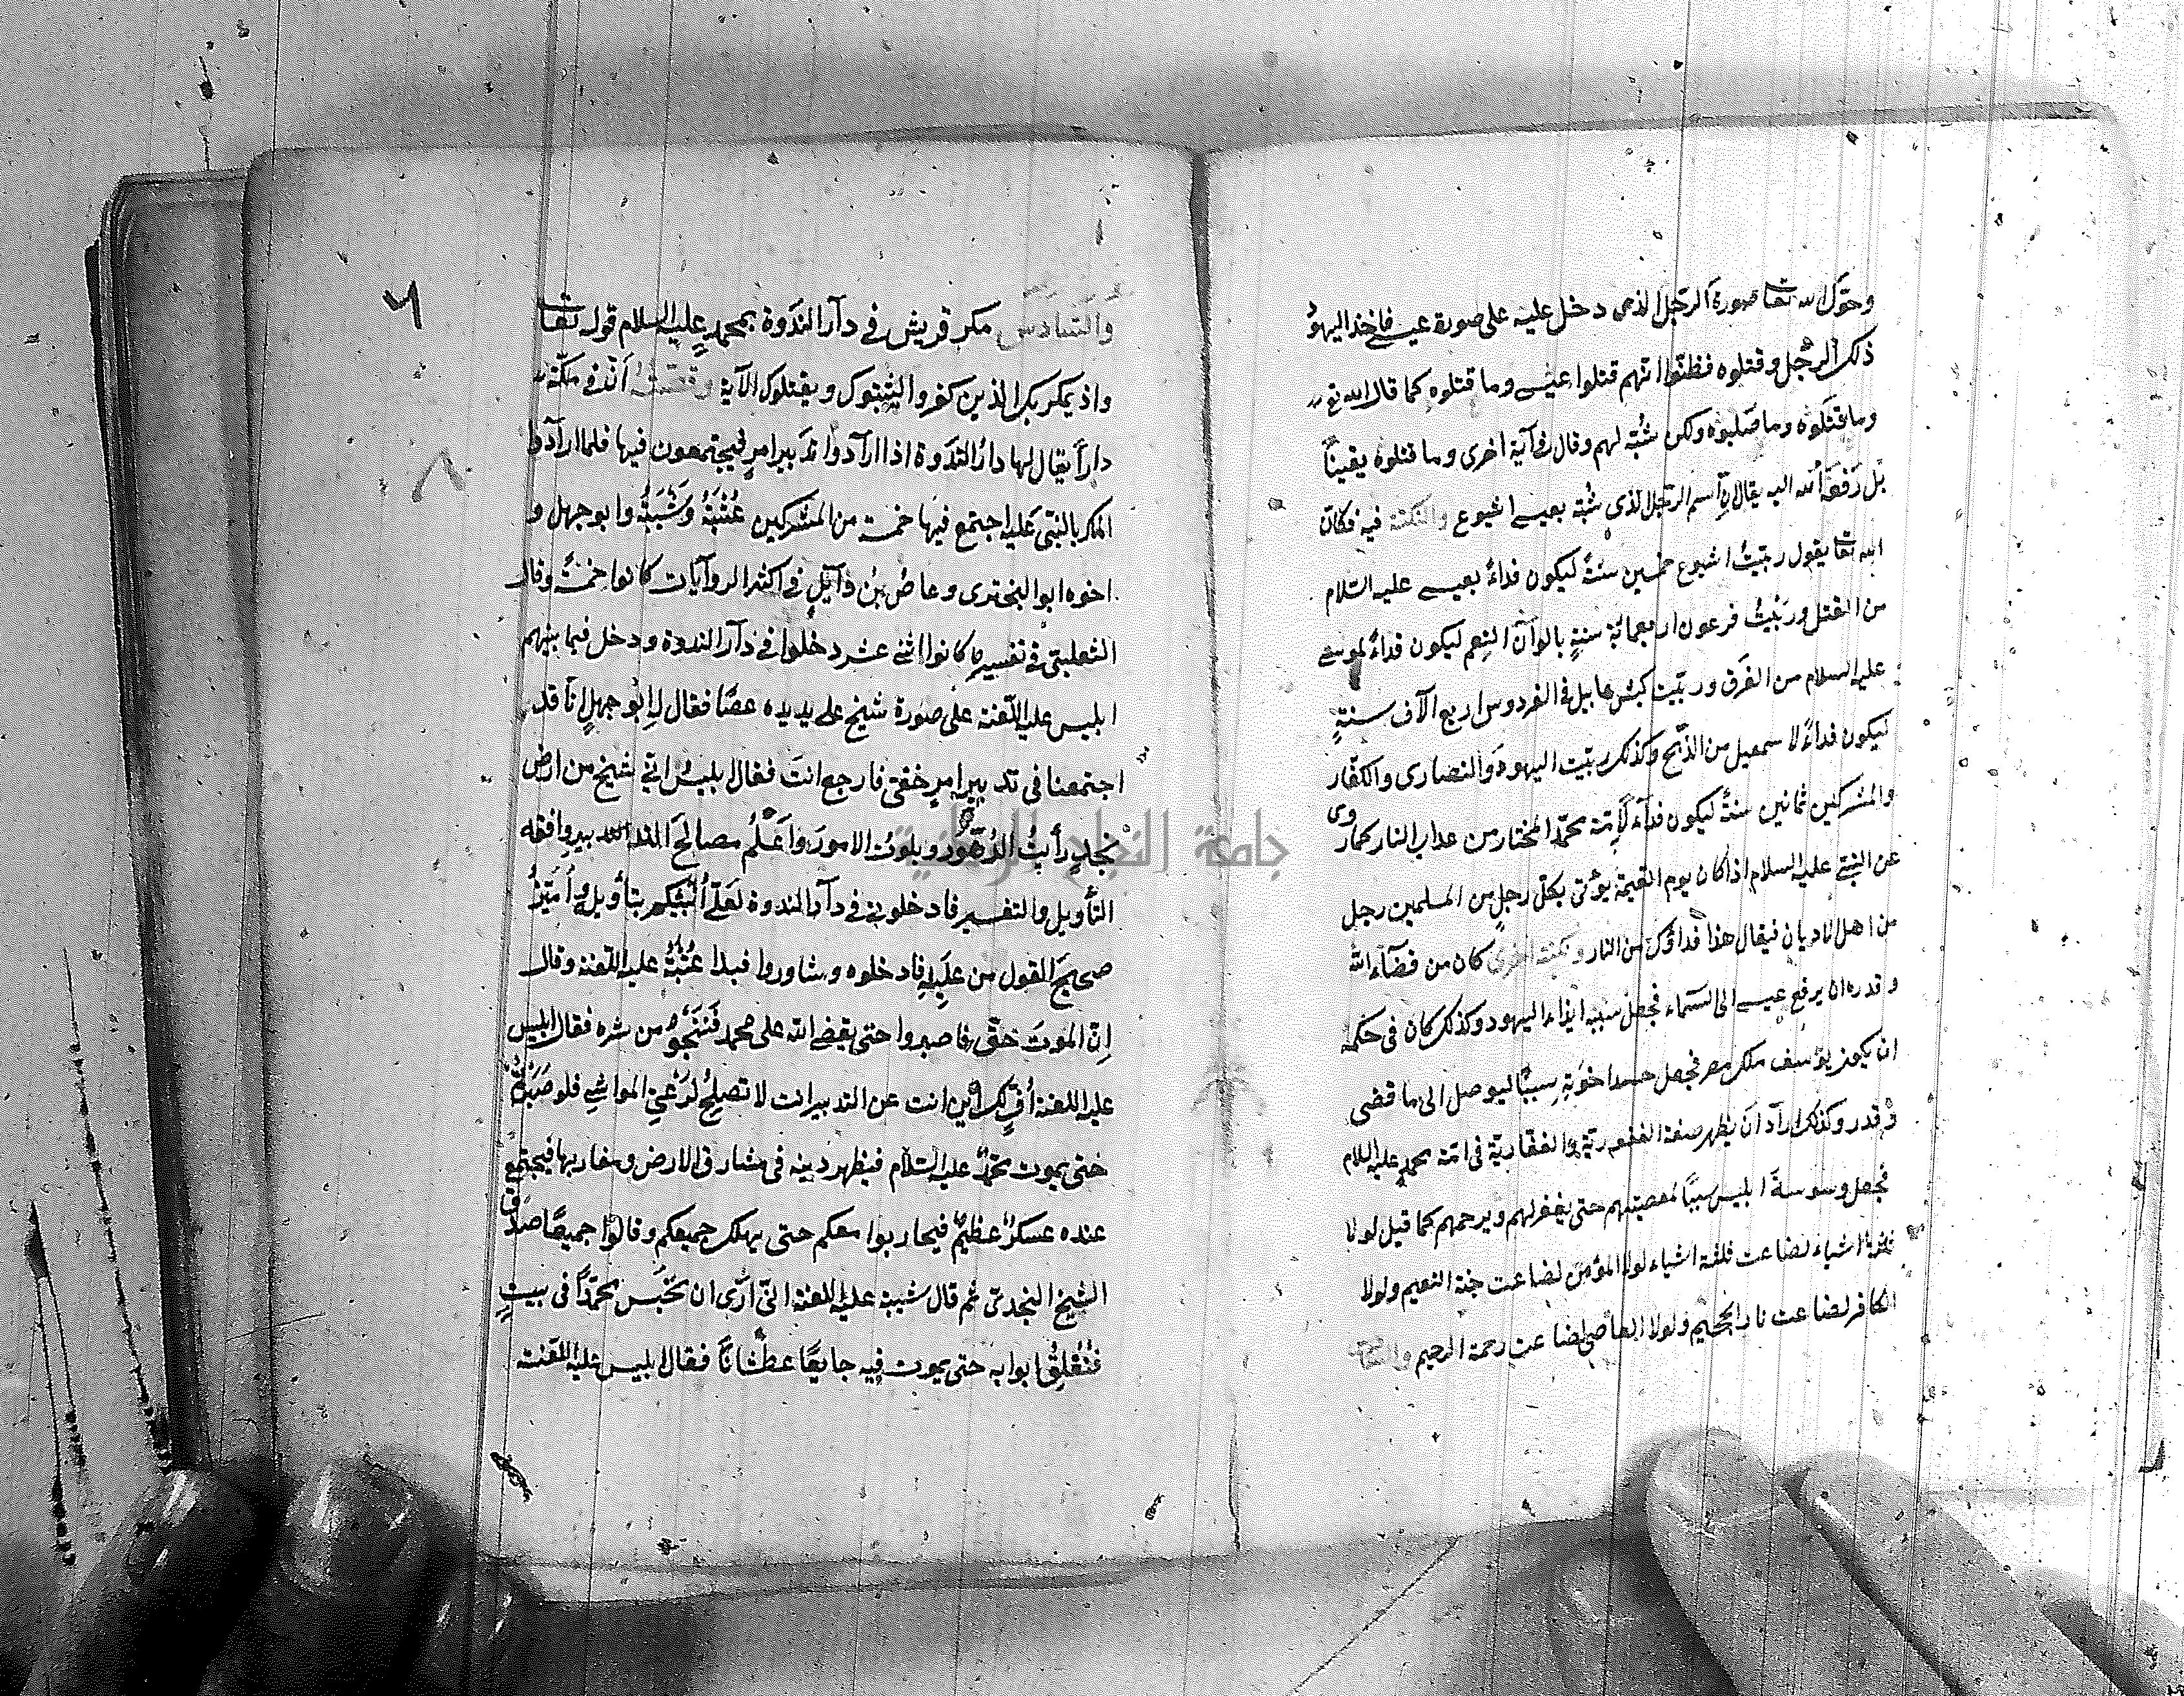 وحوّل الله تعا صورة الرجل الذى دخل عليه على صورة عيسى فاخذ اليهود
ذلك الرجل وقتلوه فظنّوا انّهم قتلوا عيسى وما قتلوه كما قال الله تع
وما قتلوه وما صلبوه ولكن شُبّه لهم وقال فى آية اخرى وما قتلوه يقيناً
بل رَفَعَهُ الله اليه يقال انّ اسم الرجل الذى شُبّه بعيسى اشيوع والنكتة فيه فكانّ
الله تعا يقول ربّيتُ اشيوع خمسين سنةً ليكون فداءً بعيسى عليه السّلام
من القتل وربّيتُ فرعون اربعمائة سنةٍ بالوان النِعم ليكون فداءً لموسى
عليه السلام من الغَرق وربّيت كبش هابيل فى الفردوس اربع آلاف سنةٍ
ليكون فداءً لاسمعيل من الذّبح وكذلك ربّيت اليهود والنصارى والكفّار
والمشركين ثمانين سنةً ليكون فدآءً لأمّة محمّد المختار من عذاب النار كما روى
عن النبىّ عليه السلام اذا كان يوم القيمة يؤتى بكلّ رجلٍ من المسلمين رجل
من اهل الاديان فيقال هذا فداؤك من النار ونكتة اخرى كان من قضآء الله
وقدره ان يرفع عيسى الى السّماء فجعل سببه ايذاء اليهود وكذلك كان فى حكمه
ان يكون يوسف ملك مصر فجعل حسد اخوته سبباً ليوصل الى ما قضى
وقدر وكذلك ارآد انّ يظهر صفة الغفورية والغفّارية فى امّة محمدٍ عليه السلام
فجعل وسوسة ابليس سبباً لمعصيتهم حتى يغفر لهم ويرحمهم كما قيل لولا
ثلثة اشياء لضاعت ثلثة اشياء لولا المؤمن لضاعت جنة النعيم ولولا
الكافر لضاعت نار الجحيم ولولا العاصى لضاعت رحمة الرحيم
والسّادس مكر قريش فى دآر الندوة بمحمدٍ عليه السلام قوله تعا
واذ يمكر بك الذين كفروا ليثبتوك ويقتلوك الآية وقصّته انّ فى مكّة
داراً يقال لها دارُ النّدوة اذا ارآدوا تدبير امرٍ فيجتمعون فيها فلما ارآدوا
المكر بالنبىّ عليه اجتمع فيها خمسة من المشركين عُتْبَةُ وشَيْبَةُ وابو جهل و
اخوه ابو البخترى وعاصُ بْنُ وآئلٍ فى اكثر الروآيات كانوا خمسةً وقال
الثعلبىّ فى تفسيره كانوا اثنى عشر دخلوا فى دآر الندوة ودخل فيما بينهم
ابليس عليه اللّعنة على صورة شيخ على يديده عصًا فقال لِابو جهلٍ انّا قد
اجتمعنا فى تدبيرِ امرٍ خفىّ فارجع انتَ فقال ابليسُ انّى شيخ من ارض
نجدٍ رأيتُ الدُهُورَ وبلوتُ الامورَ واَعْلَمُ مصالحَ التدبير وافقه
التأويل والتفسير فادخلونى فى دآر الندوة لعلّى اُنَبِّئكم بتأويله واُمَيّزُ
صحيحَ القول من عليلِه فادخلوه وشاوروا فبدا عُتْبَةُ عليه اللّعنة وقال
اِنّ الموتَ حقّ فاصبروا حتى يقضى الله على محمد فَنَنْجُو من شره فقال ابليس
عليه اللعنة اُفٍّ لك اين انت عن التدبير انت لا تصلح لِرَعْىِ المواشى فلو صَبَرْتُمْ
حتى يموت محمّدٌ عليه السّلام فيظهر دينه فى مشارق الارض ومغاربها فيجتمع
عنده عسكرٌ عظيمٌ فيحاربوا معكم حتى يهلك جميعكم وقالوا جميعًا صدق
الشيخ النجدىّ ثم قال شيبة عليه اللعنة انّى اَرَى ان نحبس محمّداً فى بيتٍ
فنُغْلِقُ ابوابه حتى يموت فيه جايعًا عطشانًا فقال ابليس عليه اللّعنة
جامعة النجاح الوطنية